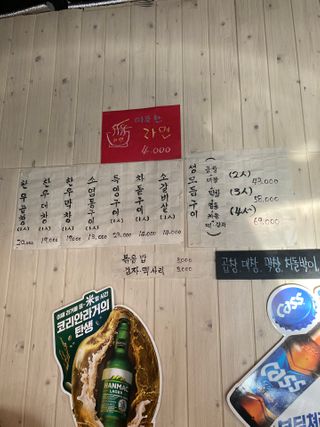 따끈한
라면
4.000
한우곱창 (1人) 20,000
한우대창 (1人) 19,000
한우막창 (1人) 19,000
소염통구이 (1人) 13,000
특양구이 (1人) 23,000
차돌구이 (1人) 14,000
소갈비살 (1人) 14,000
성모듬구이
곱창
대창
막창
염통
차돌
떡·감자
(2人) 43,000
(3人) 58,000
(4人) 69,000
볶음밥 3,000
감자·떡사리 3,000
곱창, 대창, 막창, 차돌박이,
米
코리안라거의
탄생
HANMAC
LAGER
Cass
Cass